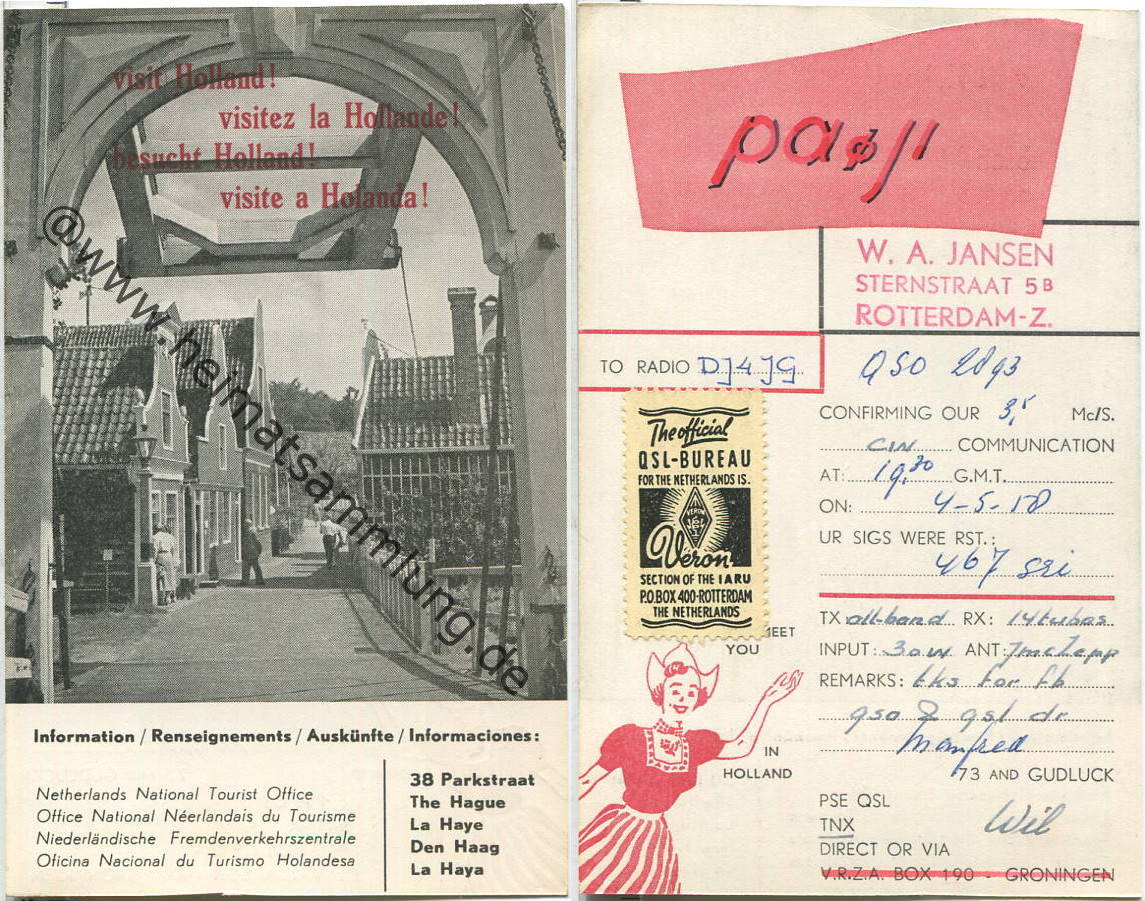 visit Holland!
visitez la Hollande!
besucht Holland!
visite a Holanda!
@www.heimatsammlung.de
Information / Renseignements / Auskünfte / Informaciones:
Netherlands National Tourist Office
Office National Néerlandais du Tourisme
Niederländische Fremdenverkehrszentrale
Oficina Nacional du Turismo Holandesa
38 Parkstraat
The Hague
La Haye
Den Haag
La Haya
W. A. JANSEN
STERNSTRAAT 5B
ROTTERDAM-Z.
TO RADIO DJ4JG
QSO 2893
CONFIRMING OUR 3,5 Mc/S.
CW COMMUNICATION
AT: 19.30 G.M.T.
ON: 4-5-58
UR SIGS WERE RST.:
467 sri
TX all-band RX: 14 tubes
INPUT: 30W ANT:
REMARKS: tks for fb
qso & qsl dr
Manfred
73 AND GUDLUCK
PSE QSL
TNX
Wil
DIRECT OR VIA
V.R.Z.A. BOX 190 - GRONINGEN
The official
QSL-BUREAU
FOR THE NETHERLANDS IS.
VERON
Veron
SECTION OF THE IARU
P.O.BOX 400-ROTTERDAM
THE NETHERLANDS
MEET
YOU
IN
HOLLAND